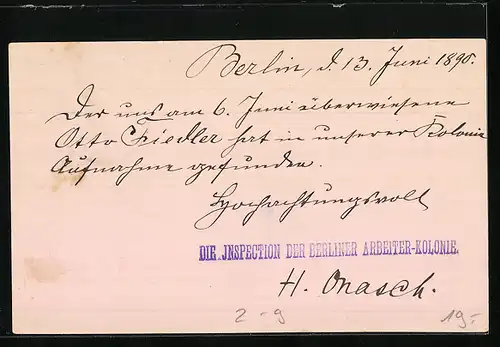 Berlin, d. 13. Juni 1890.
Der uns am 6. Juni überwiesene
Otto Fiedler hat in unserer Kolonie
Aufnahme gefunden.
Hochachtungsvoll
DIE JNSPECTION DER BERLINER ARBEITER-KOLONIE.
H. Onasch.
2 - 9
19.-